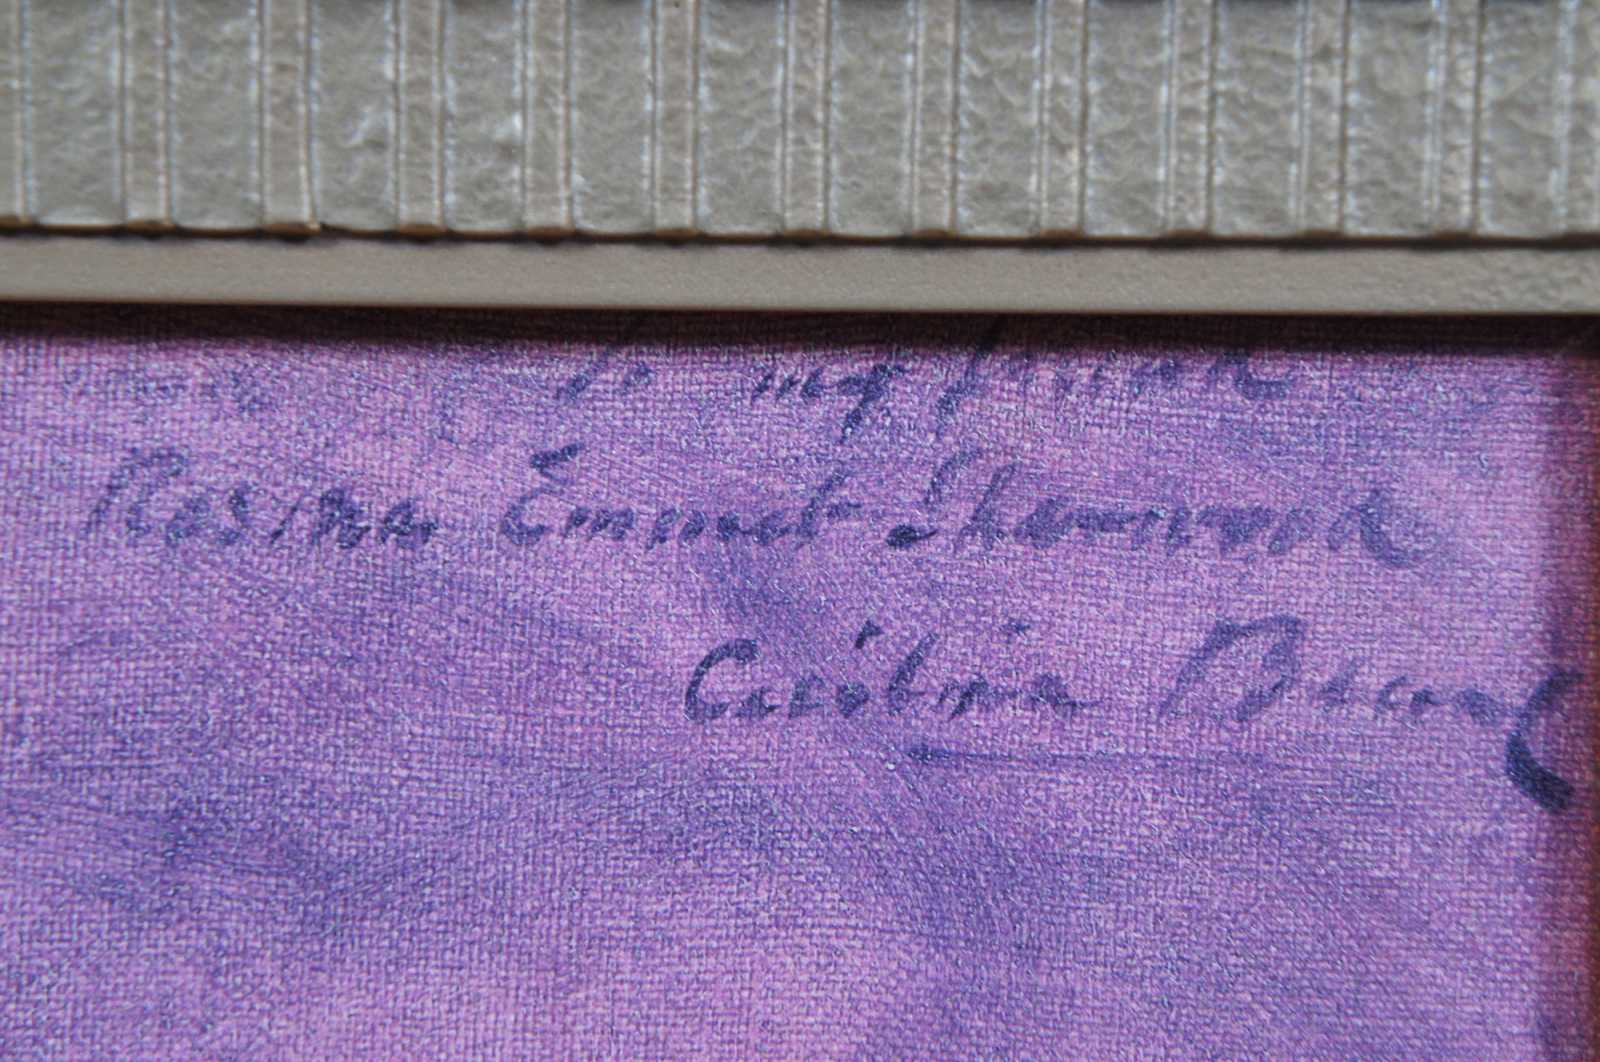 To my friend
Rosina Emmet Sherwood
Cecilia Beaux